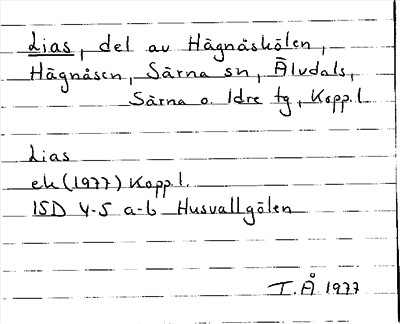 Lias, del av Hägnåskölen,
Hägnåsen, Särna sn, Älvdals,
Särna o. Idre tg, Kopp.l.
Lias
ek (1977) Kopp.l.
15D 4-5 a-b Husvallgölen
T.Å 1977